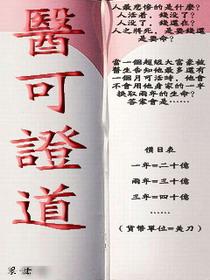 醫可證道
人最悲慘的是什麼?
人活著，錢沒了?
人沒了，錢還在?
人之將死，是要錢還
是要命?
當一個超級大富豪被
醫生告知他最多還有
一個月可活時，他會
不會用他身家的一半
換取兩年的生命?
答案會是……
價目表
一年=二十億
兩年=三十億
三年=四十億
……
(貨幣單位=美刀)